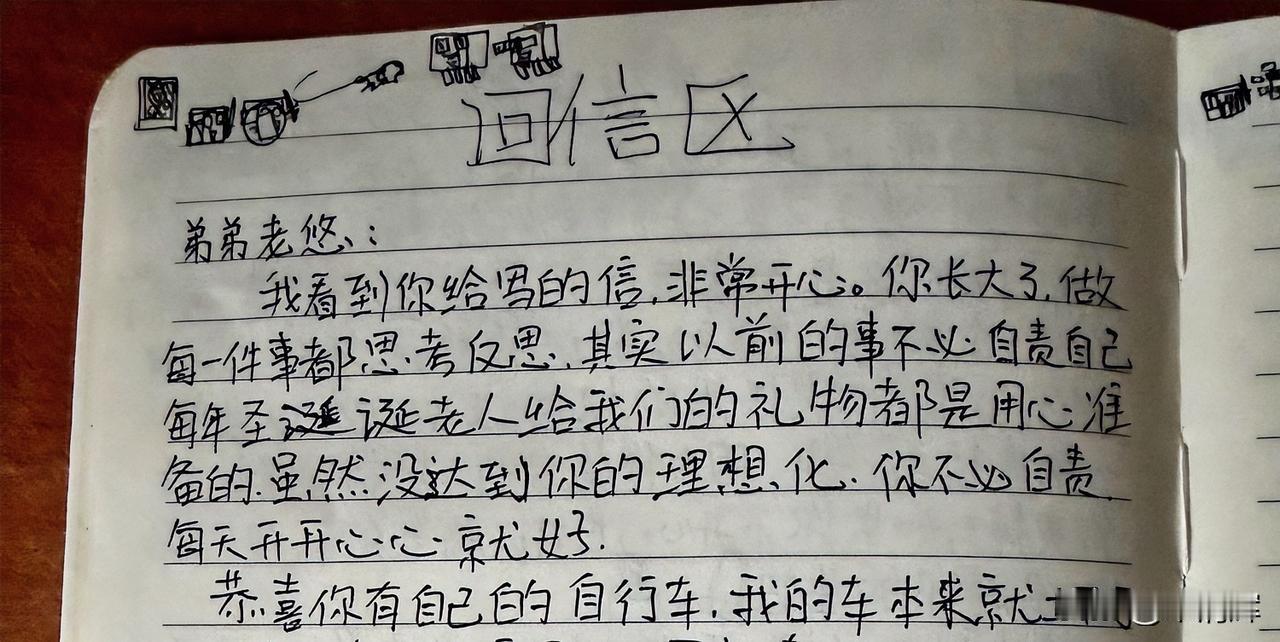 回信区
弟弟老悠:
我看到你给写的信,非常开心。你长大了,做
每一件事都思考反思,其实以前的事不必自责自己
每年圣诞诞老人给我们的礼物都是用心准
备的.虽然没达到你的理想化.你不必自责.
每天开开心心就好.
恭喜你有自己的自行车.我的车本来就